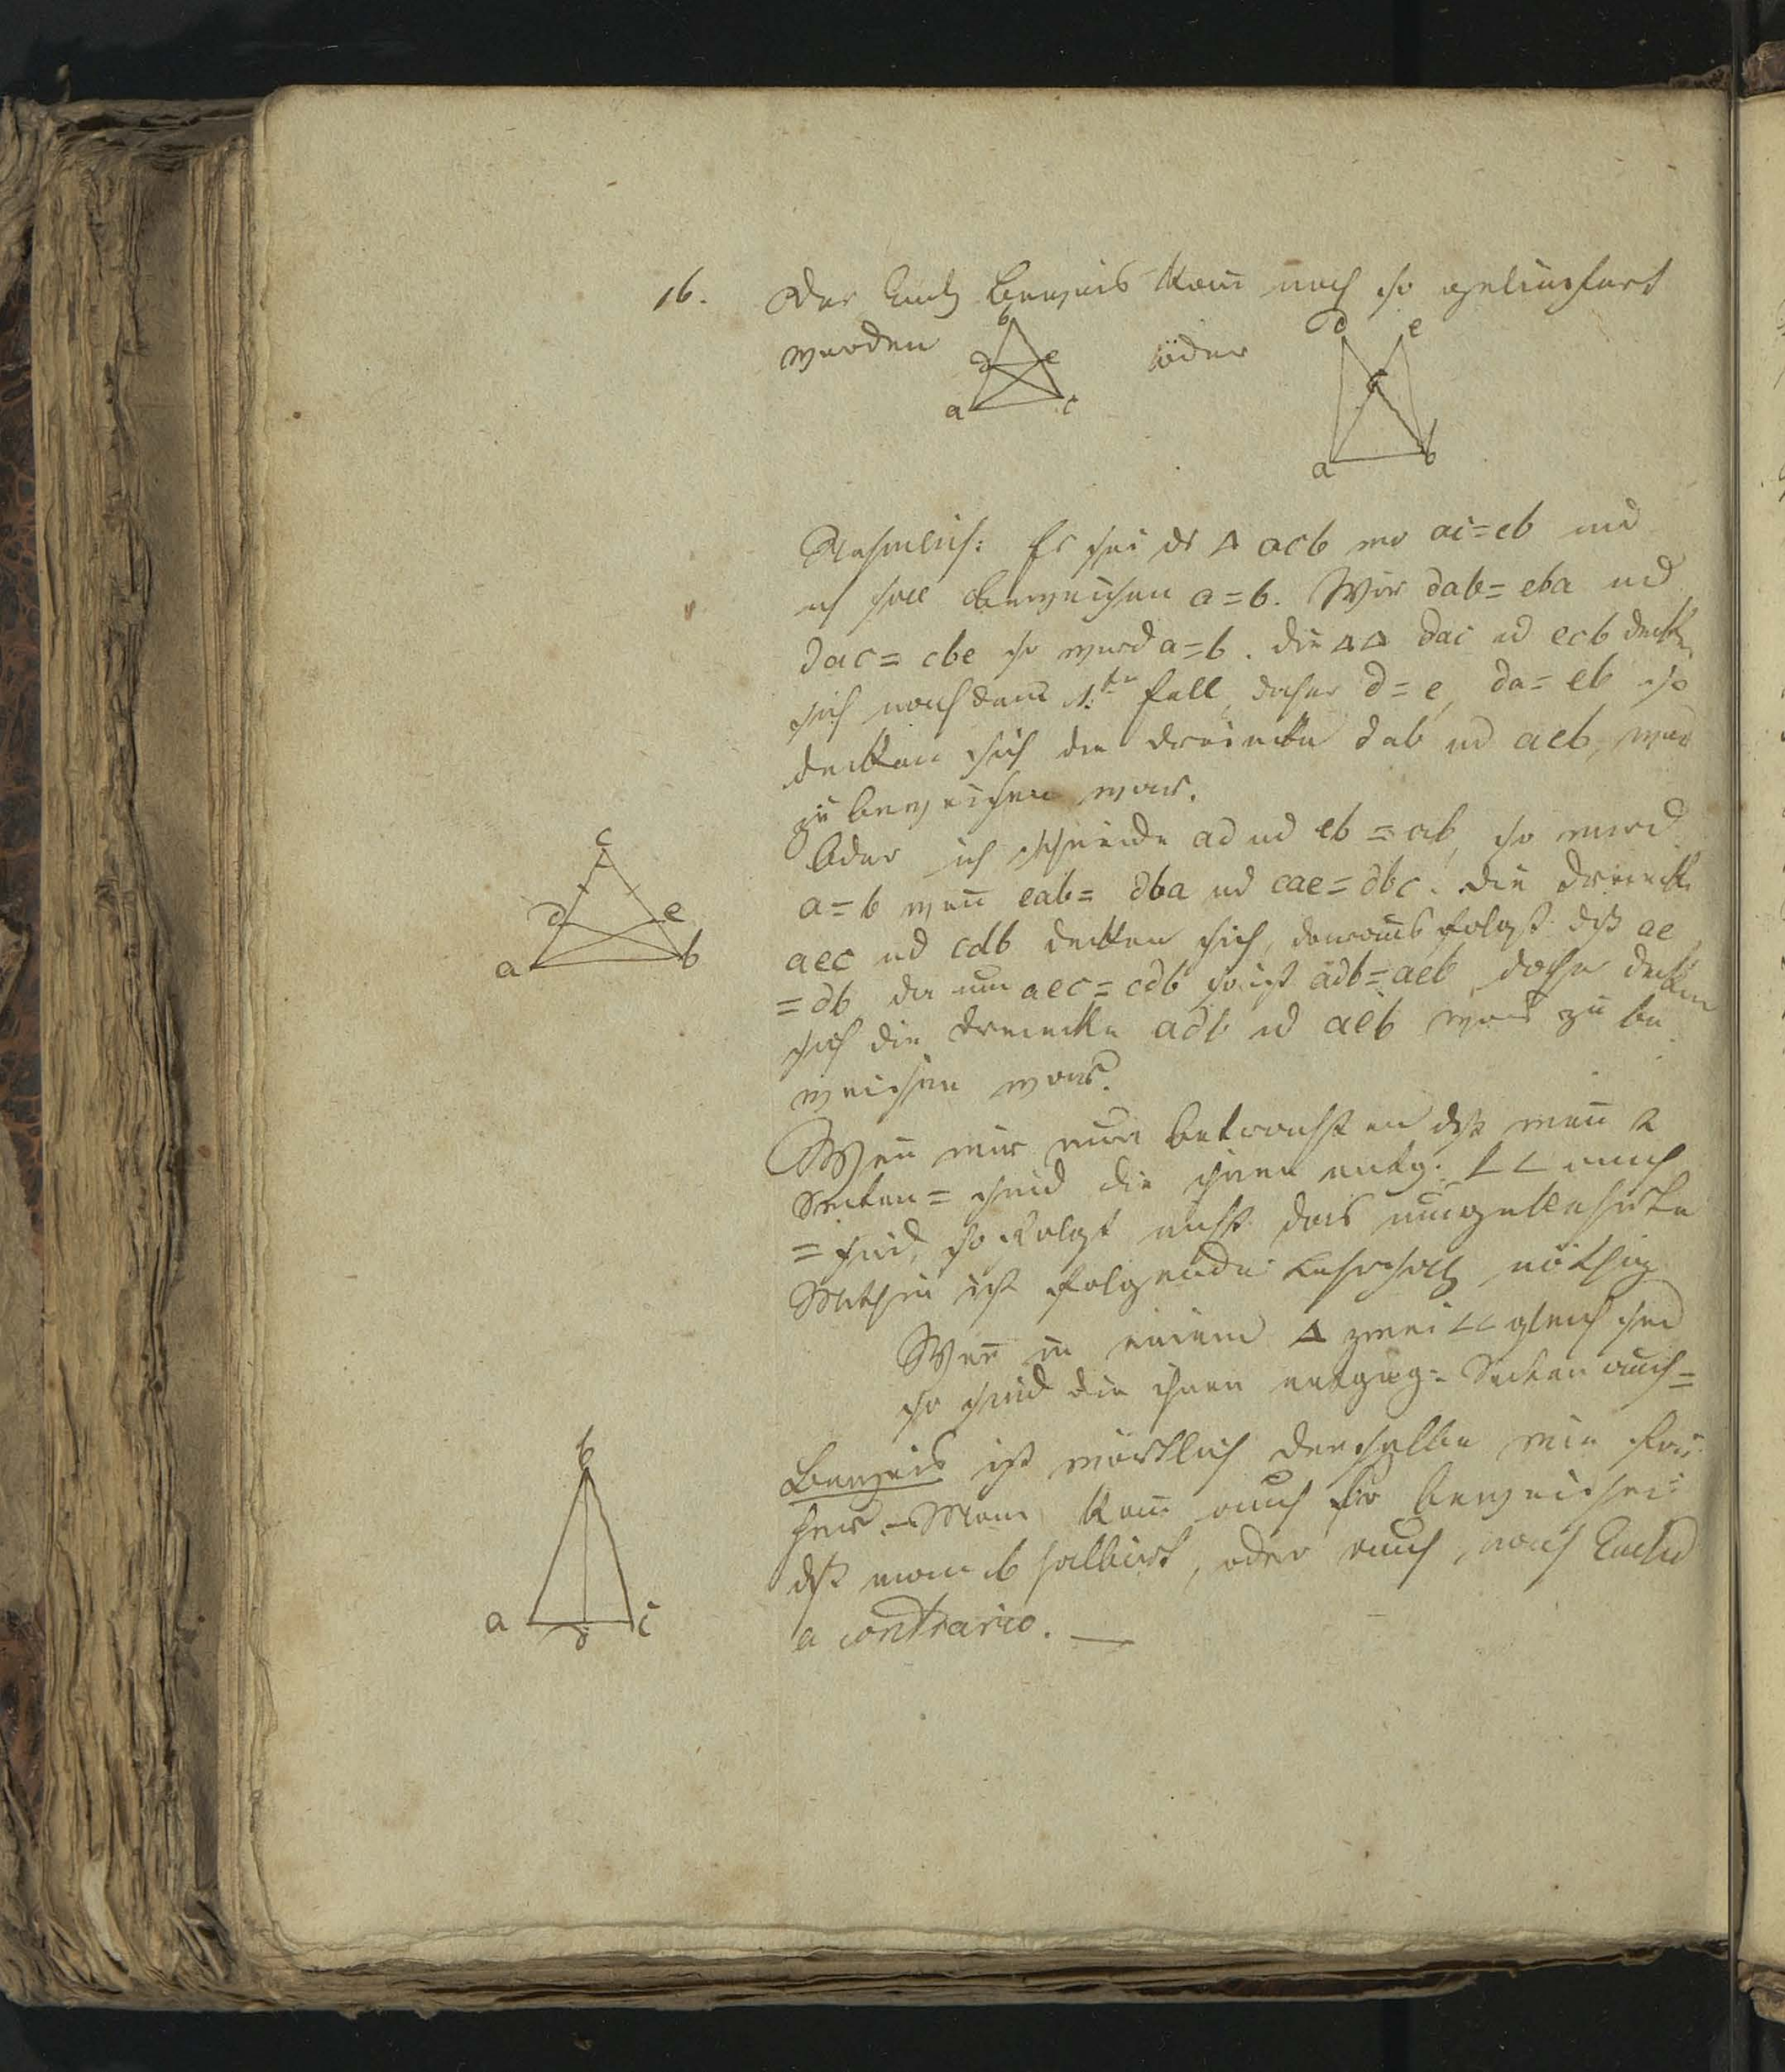 16. Der Eucl. Beweis kan̄ noch so geliefert
b d e
werden d e oder c
a c
a b
Nehmlich: Es sei ds Δ acb wo ac=cb und
ich soll beweisen a=b. Wär dab=eba und
dac=cbe so würd a=b. Die ΔΔ dac ud ecb decken
sich nach dem 1.ten Fall, daher d=e, da=eb so
decken sich die Dreiecke dab ud aeb, was
zu beweisen war.
c
Oder ich schneide ad ud eb = ab, so wird
a=b wen̄ eab=dba ud cae=dbc. Die Dreiecke
d e
aec ud cdb decken sich, daraus folgt dß ae
a b
=db da nun aec=cdb so ist adb=aeb daher decken
sich die Dreiecke adb ud aeb was zu be
weisen war.
Wen̄ wir nun betrachten dß wen̄ 2
Seiten = sind die ihnen entg. ∠∠ auch
= sind, so folgt nicht das umgekehrte
Mithin ist folgender Lehrsatz nöthig
Wen̄ in einem Δ zwei ∠∠ gleich sind
so sind die ihnen entgeg: Seiten auch =
b
Beweis ist wörtlich derselbe wie frü
her. Man kan̄ auch so beweisen:
dß man b halbirt, oder auch, nach Euclid
a d c
a contrario. —